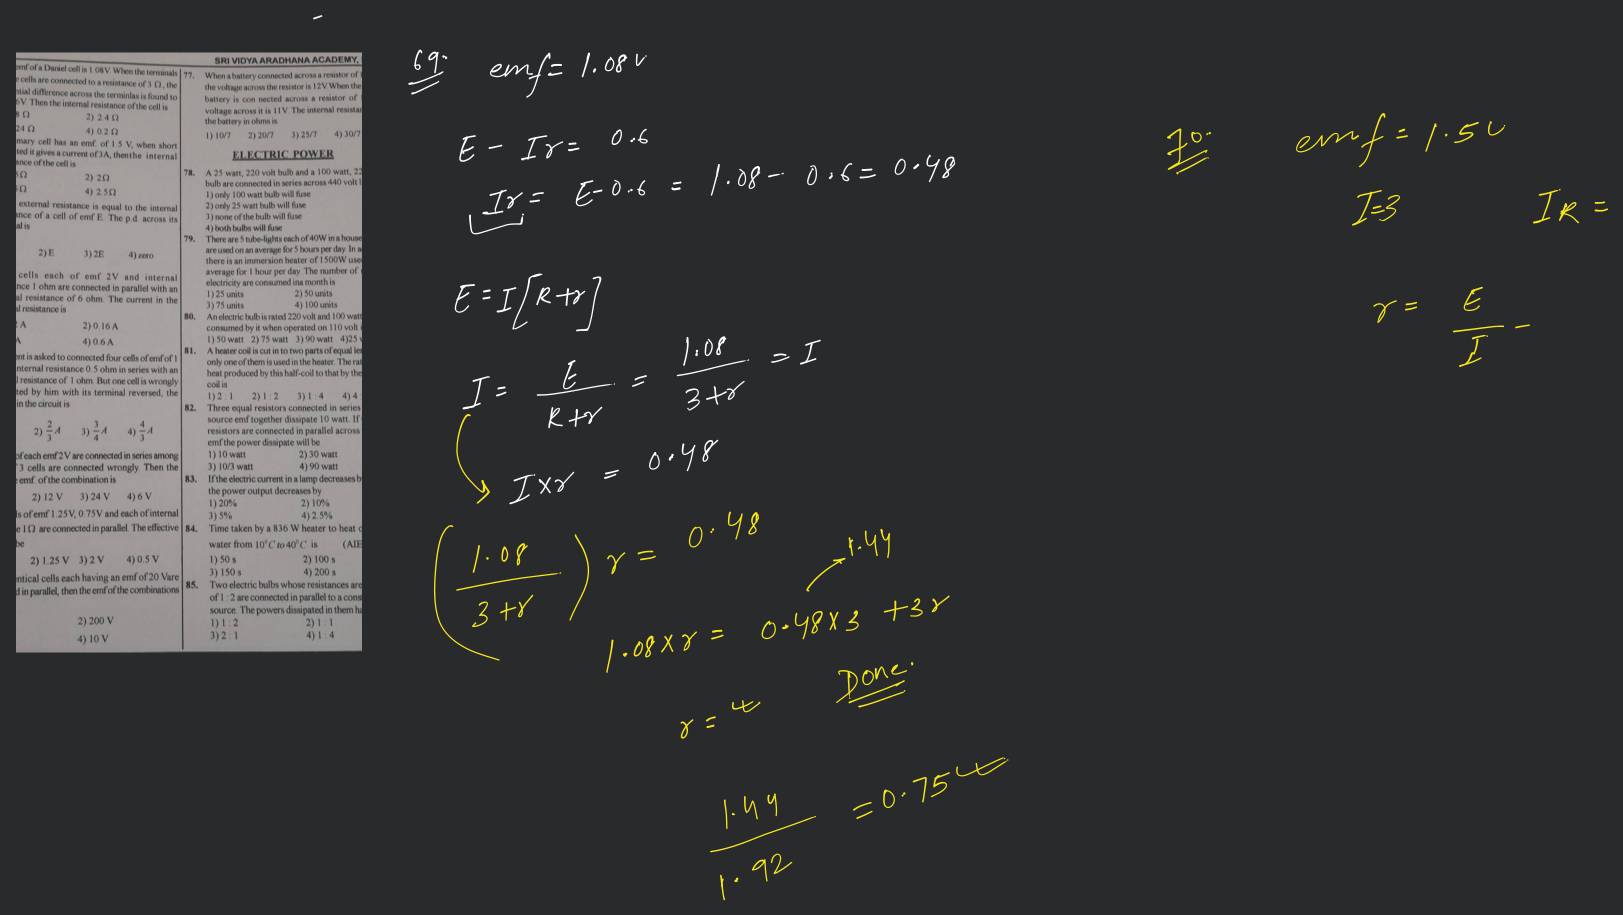 SRI VIDYA ARADHANA ACADEMY,
emf of a Daniel cell is 1.08V. When the terminals
cells are connected to a resistance of 3 Ω, the
tial difference across the terminlas is found to
6V Then the internal resistance of the cell is
8 Ω 2) 2.4 Ω
24 Ω 4) 0.2 Ω
mary cell has an emf. of 1.5 V, when short
ted it gives a current of 3A, thenthe internal
ance of the cell is
2) 2Ω
4) 2.5Ω
external resistance is equal to the internal
nce of a cell of emf E. The p.d. across its
al is
2) E 3) 2E 4) zero
cells each of emf 2V and internal
nce 1 ohm are connected in parallel with an
al resistance of 6 ohm. The current in the
al resistance is
A 2) 0.16 A
A 4) 0.6 A
nt is asked to connected four cells of emf of 1
nternal resistance 0.5 ohm in series with an
l resistance of 1 ohm. But one cell is wrongly
ted by him with its terminal reversed, the
in the circuit is
2) 2/3 A 3) 3/4 A 4) 4/3 A
of each emf 2V are connected in series among
3 cells are connected wrongly. Then the
emf. of the combination is
2) 12 V 3) 24 V 4) 6 V
ls of emf 1.25V, 0.75V and each of internal
e 1Ω are connected in parallel. The effective
be
2) 1.25 V 3) 2 V 4) 0.5 V
ntical cells each having an emf of 20 V are
d in parallel, then the emf of the combinations
2) 200 V
4) 10 V
77. When a battery connected across a resistor of
the voltage across the resistor is 12V When the
battery is con nected across a resistor of
voltage across it is 11V. The internal resista
the battery in ohms is
1) 10/7 2) 20/7 3) 25/7 4) 30/7
ELECTRIC POWER
78. A 25 watt, 220 volt bulb and a 100 watt, 22
bulb are connected in series across 440 volt l
1) only 100 watt bulb will fuse
2) only 25 watt bulb will fuse
3) none of the bulb will fuse
4) both bulbs will fuse
79. There are 5 tube-lights each of 40W in a house
are used on an average for 5 hours per day. In a
there is an immersion heater of 1500W use
average for 1 hour per day. The number of
electricity are consumed ina month is
1) 25 units 2) 50 units
3) 75 units 4) 100 units
80. An electric bulb is rated 220 volt and 100 wat
consumed by it when operated on 110 volt
1) 50 watt 2) 75 watt 3) 90 watt 4)25
81. A heater coil is cut in to two parts of equal le
only one of them is used in the heater. The rat
heat produced by this half-coil to that by the
coil is
1) 2 : 1 2) 1 : 2 3) 1 : 4 4) 4
82. Three equal resistors connected in series
source emf together dissipate 10 watt. If
resistors are connected in parallel across
emf the power dissipate will be
1) 10 watt 2) 30 watt
3) 10/3 watt 4) 90 watt
83. If the electric current in a lamp decreases b
the power output decreases by
1) 20% 2) 10%
3) 5% 4) 2.5%
84. Time taken by a 836 W heater to heat
water from 10°C to 40°C is (AIE
1) 50 s 2) 100 s
3) 150 s 4) 200 s
85. Two electric bulbs whose resistances are
of 1 : 2 are connected in parallel to a cons
source. The powers dissipated in them ha
1) 1 : 2 2) 1 : 1
3) 2 : 1 4) 1 : 4
69. emf = 1.08 v
E - Ir = 0.6
Ir = E-0.6 = 1.08 - 0.6 = 0.48
E = I[R+r]
I = E/R+r = 1.08/3+r = I
I×r = 0.48
(1.08/3+r) r = 0.48
1.44
1.08×r = 0.48×3 +3r
Done.
r =
1.44/1.92 = 0.75
70. emf = 1.5 v
I=3 IR =
r = E/I -